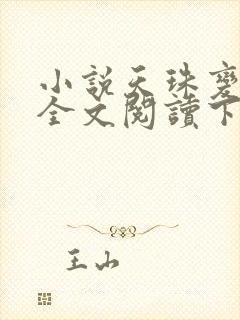 小說天珠變
全文閱讀下
王山